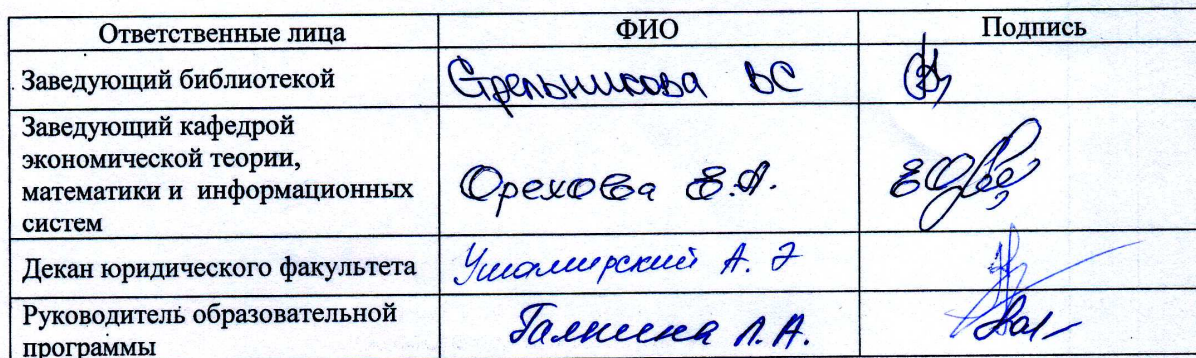 Ответственные лица ФИО Подпись
Заведующий библиотекой Стрельникова ВС
Заведующий кафедрой
экономической теории,
математики и информационных Орехова Е.А.
систем
Декан юридического факультета А. Э
Руководитель образовательной Л.А.
программы